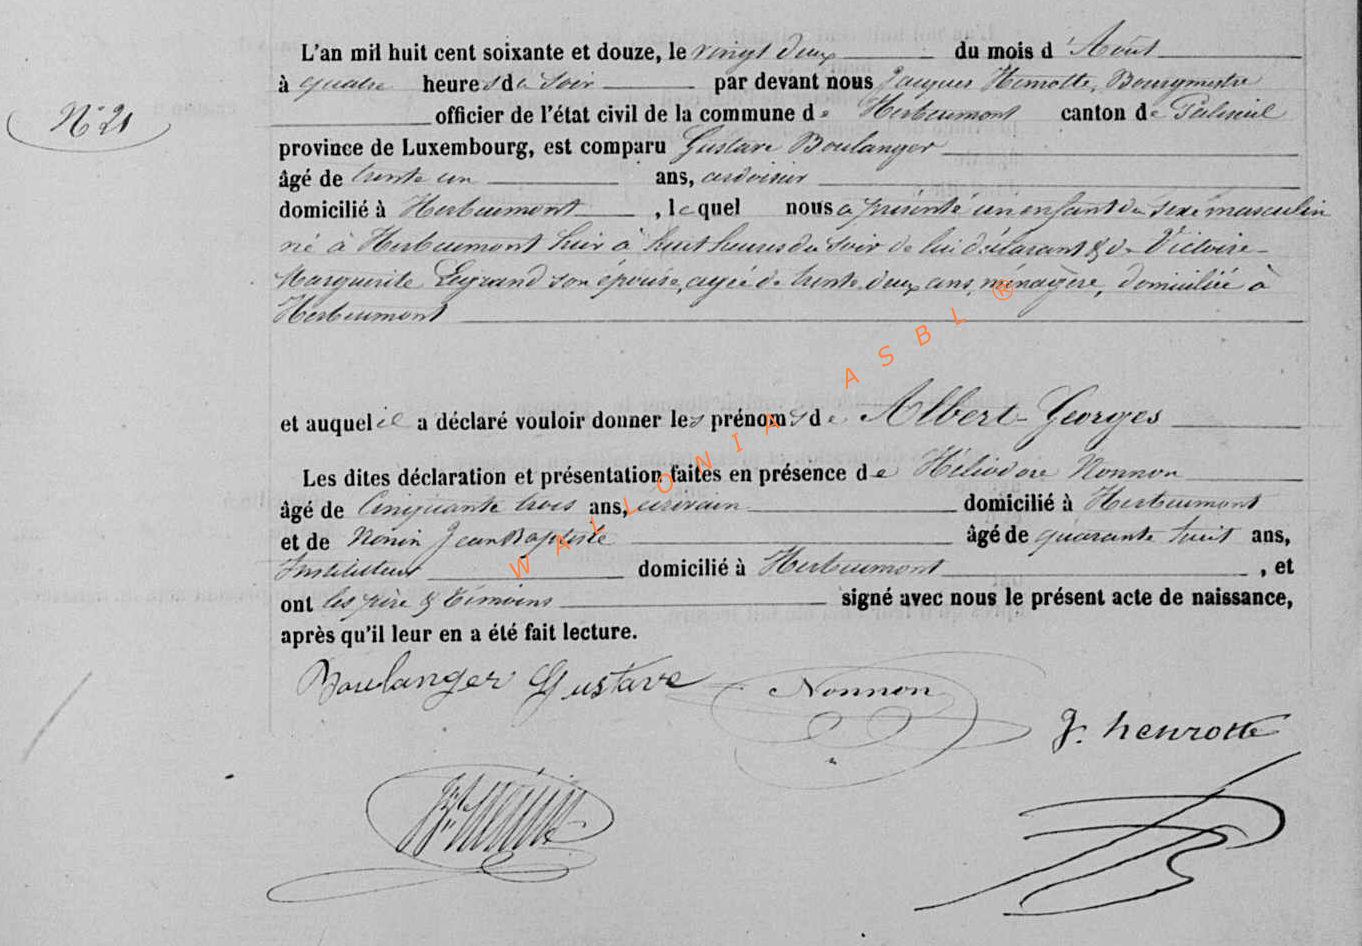 L'an mil huit cent soixante et douze, le vingt deux du mois d'Août
à quatre heures du soir par devant nous Jacques Henrotte, Bourgmestre
N° 21
officier de l'état civil de la commune de Herbeumont canton de Paliseul
province de Luxembourg, est comparu Gustave Boulanger
âgé de trente un ans, ardoisier
domicilié à Herbeumont, lequel nous a présenté un enfant du sexe masculin
né à Herbeumont hier à huit heures du soir de lui déclarant & de Victoire-
Marguerite Legrand son épouse, agée de trente deux ans, ménagère, domiciliée à
Herbeumont
et auquel il a déclaré vouloir donner les prénoms de Albert-Georges
Les dites déclaration et présentation faites en présence de Héliodore Nonnon
âgé de Cinquante trois ans, écrivain domicilié à Herbeumont
et de Nonin Jean Baptiste âgé de quarante huit ans,
Instituteur domicilié à Herbeumont, et
ont les père & témoins signé avec nous le présent acte de naissance,
après qu'il leur en a été fait lecture.
Boulanger Gustave Nonnon
J. henrotte
WALLONIA ASBL ®